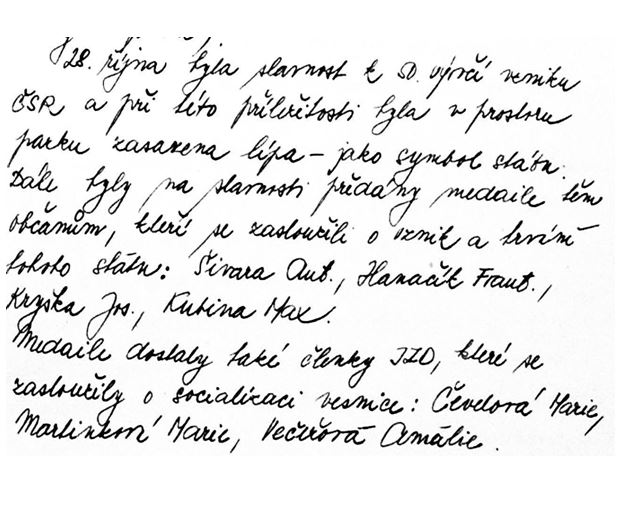 28. října byla slavnost k 50. výročí vzniku
ČSR a při této příležitosti byla v prostoru
parku zasazena lípa – jako symbol státu.
Dále byly na slavnosti předány medaile těm
občanům, kteří se zasloužili o vznik a trvání
tohoto státu: Šivara Ant., Hanačík Frant.,
Kryška Jos., Kubina Max.
Medaile dostaly také členky JZD, které se
zasloužily o socialisaci vesnice: Čevelová Marie,
Martinková Marie, Večeřová Amálie.